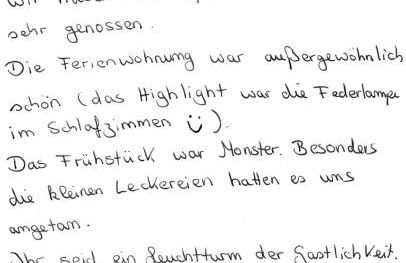 sehr genossen.
Die Ferienwohnung war außergewöhnlich
schön (das Highlight war die Federlampe
im Schlafzimmer ☺).
Das Frühstück war Monster. Besonders
die kleinen Leckereien hatten es uns
angetan.
Ihr seid ein Leuchtturm der Gastlichkeit.